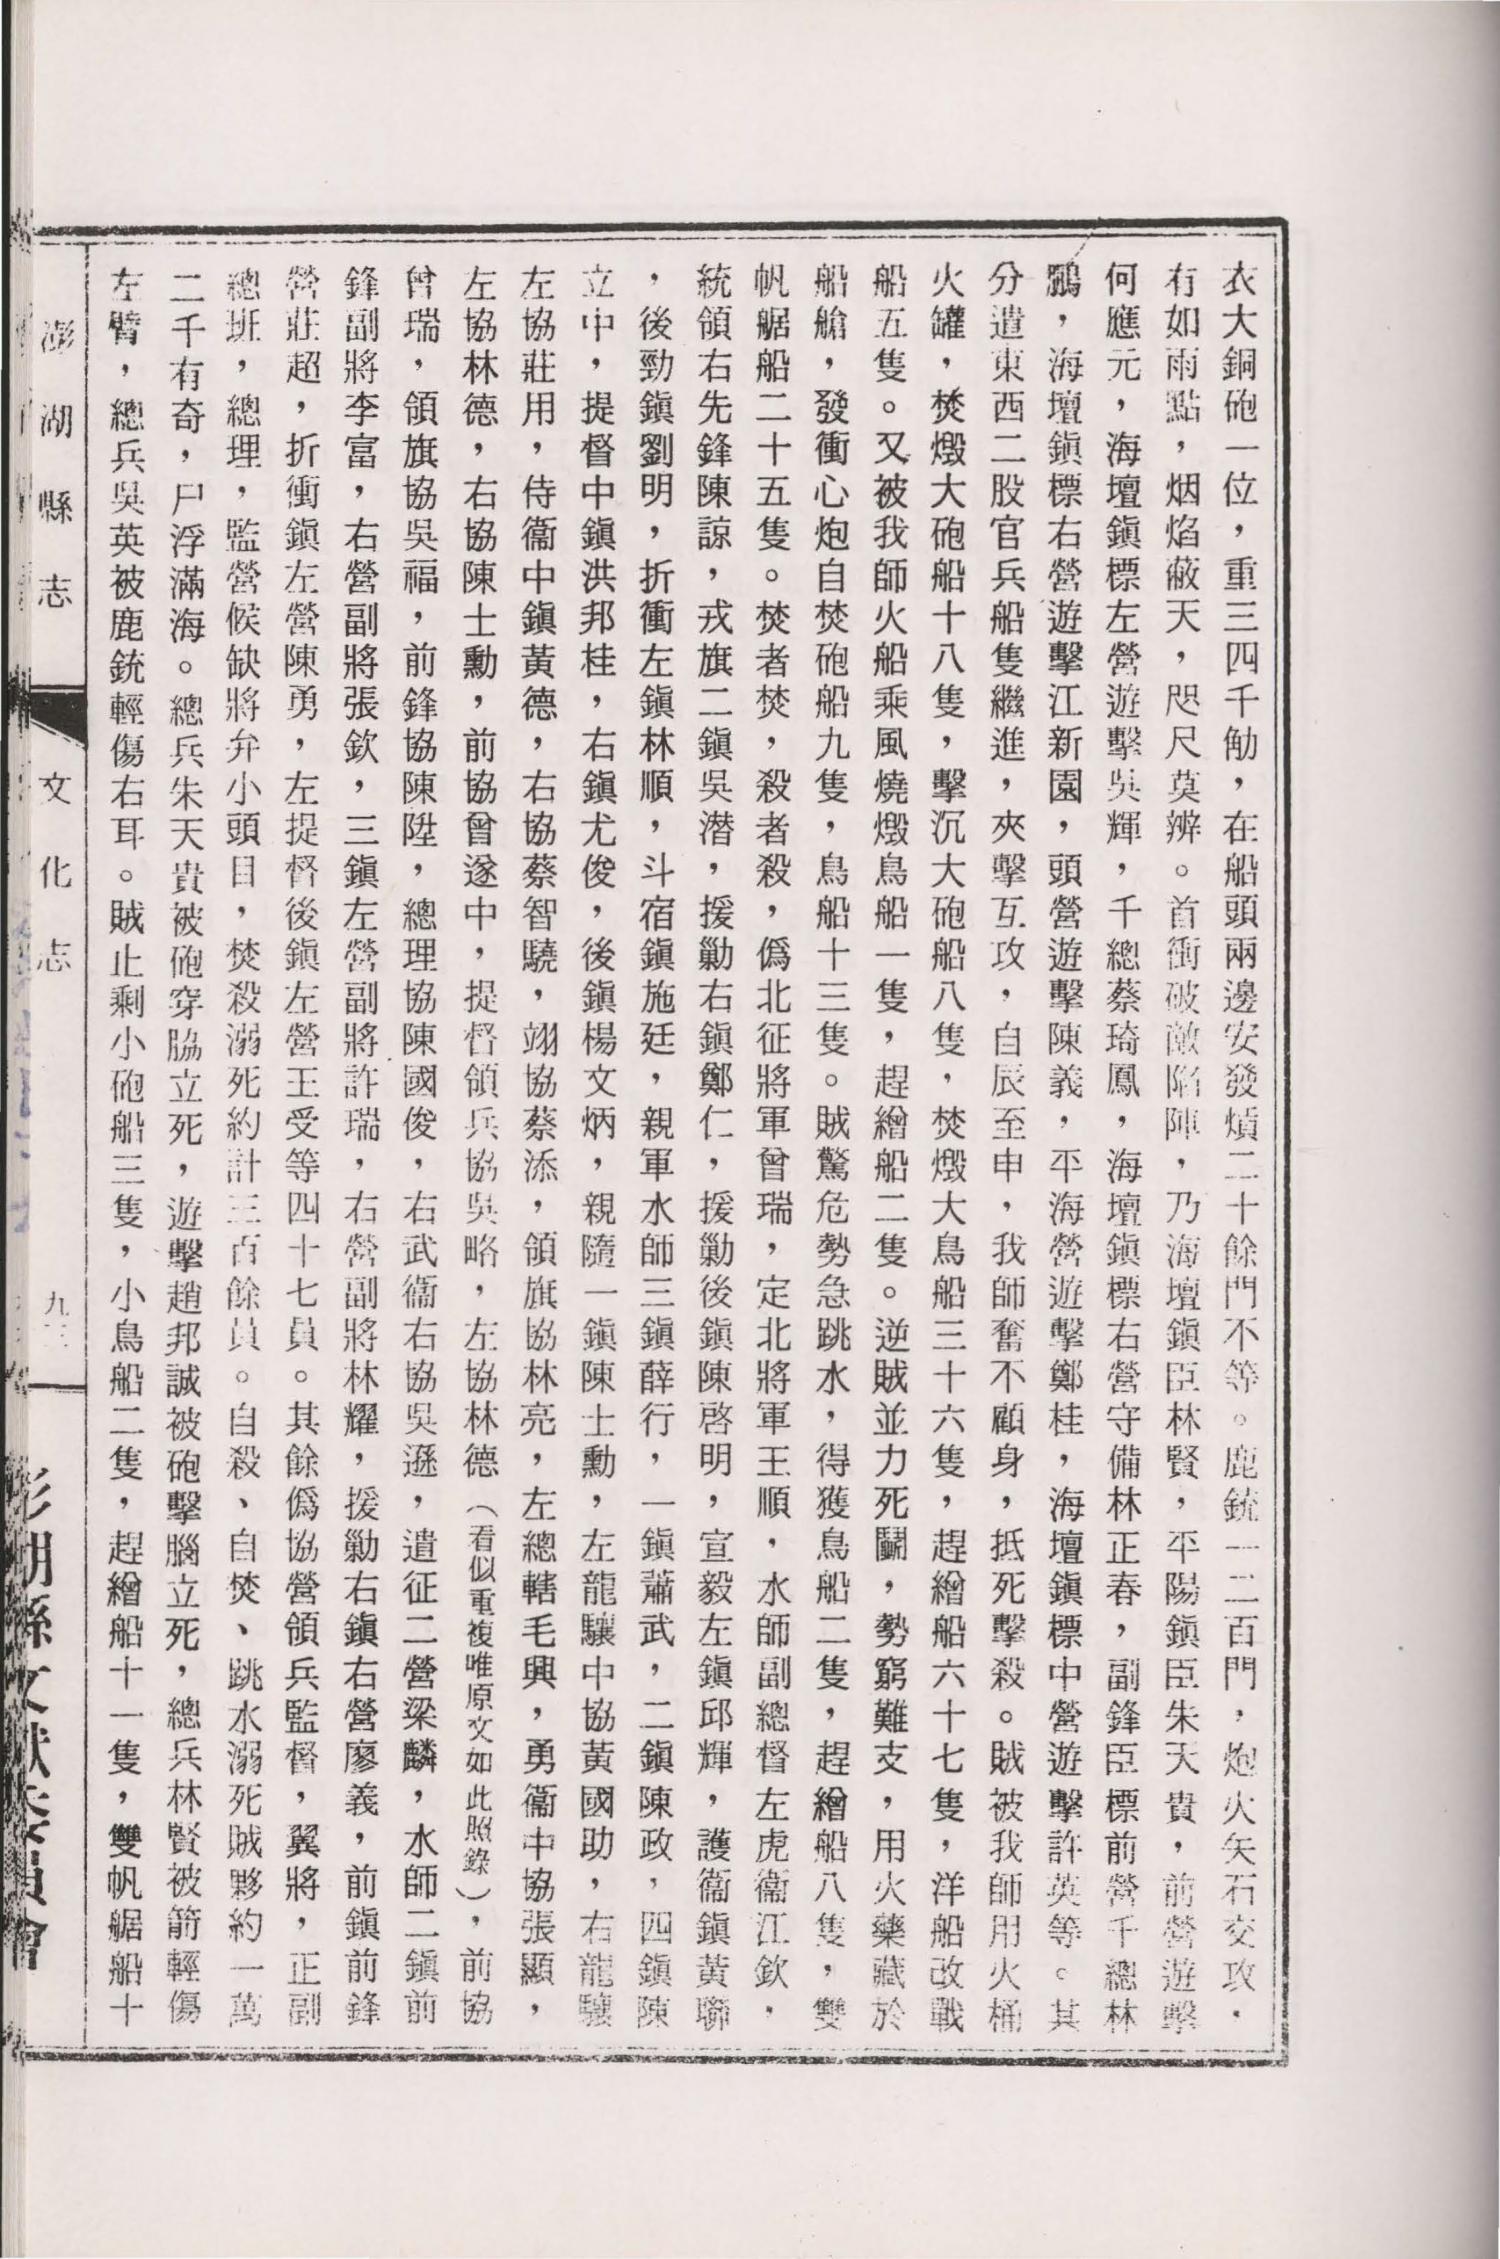 衣大銅砲一位，重三四千觔，在船頭兩邊安發熕二十餘門不等。鹿銃一二百門，炮火矢石交攻，
有如雨點，烟焰蔽天，咫尺莫辨。首衝破敵陷陣，乃海壇鎮臣林賢，平陽鎮臣朱天貴，前營遊擊
何應元，海壇鎮標左營遊擊吳輝，千總蔡琦鳳，海壇鎮標右營守備林正春，副鋒臣標前營千總林
鵬，海壇鎮標右營遊擊江新園，頭營遊擊陳義，平海營遊擊鄭桂，海壇鎮標中營遊擊許英等。其
分遣東西二股官兵船隻繼進，夾擊互攻，自辰至申，我師奮不顧身，抵死擊殺。賊被我師用火桶
火罐，焚燬大砲船十八隻，擊沉大砲船八隻，焚燬大鳥船三十六隻，趕繒船六十七隻，洋船改戰
船五隻。又被我師火船乘風燒燬鳥船一隻，趕繒船二隻。逆賊並力死鬭，勢窮難支，用火藥藏於
船艙，發衝心炮自焚砲船九隻，鳥船十三隻。賊驚危勢急跳水，得獲鳥船二隻，趕繒船八隻，雙
帆艍船二十五隻。焚者焚，殺者殺，僞北征將軍曾瑞，定北將軍王順，水師副總督左虎衞江欽，
統領右先鋒陳諒，戎旗二鎮吳潛，援勦右鎮鄭仁，援勦後鎮陳啓明，宣毅左鎮邱輝，護衞鎮黃聯
，後勁鎮劉明，折衝左鎮林順，斗宿鎮施廷，親軍水師三鎮薛行，一鎮蕭武，二鎮陳政，四鎮陳
立中，提督中鎮洪邦桂，右鎮尤俊，後鎮楊文炳，親隨一鎮陳士勳，左龍驤中協黃國助，右龍驤
左協莊用，侍衞中鎮黃德，右協蔡智驍，翊協蔡添，領旗協林亮，左總轄毛興，勇衞中協張顯，
左協林德，右協陳士勳，前協曾遂中，提督領兵協吳略，左協林德（看似重複唯原文如此照錄），前協
曾瑞，領旗協吳福，前鋒協陳陞，總理協陳國俊，右武衞右協吳遜，遺征二營梁麟，水師二鎮前
鋒副將李富，右營副將張欽，三鎮左營副將許瑞，右營副將林耀，援勦右鎮右營廖義，前鎮前鋒
營莊超，折衝鎮左營陳勇，左提督後鎮左營王受等四十七員。其餘僞協營領兵監督，翼將，正副
總班，總理，監營候缺將弁小頭目，焚殺溺死約計三百餘員。自殺、自焚、跳水溺死賊夥約一萬
二千有奇，尸浮滿海。總兵朱天貴被砲穿脇立死，遊擊趙邦誠被砲擊腦立死，總兵林賢被箭輕傷
左臂，總兵吳英被鹿銃輕傷右耳。賊止剩小砲船三隻，小鳥船二隻，趕繒船十一隻，雙帆艍船十
澎湖縣志
文化志
九三
澎湖縣文獻委員會